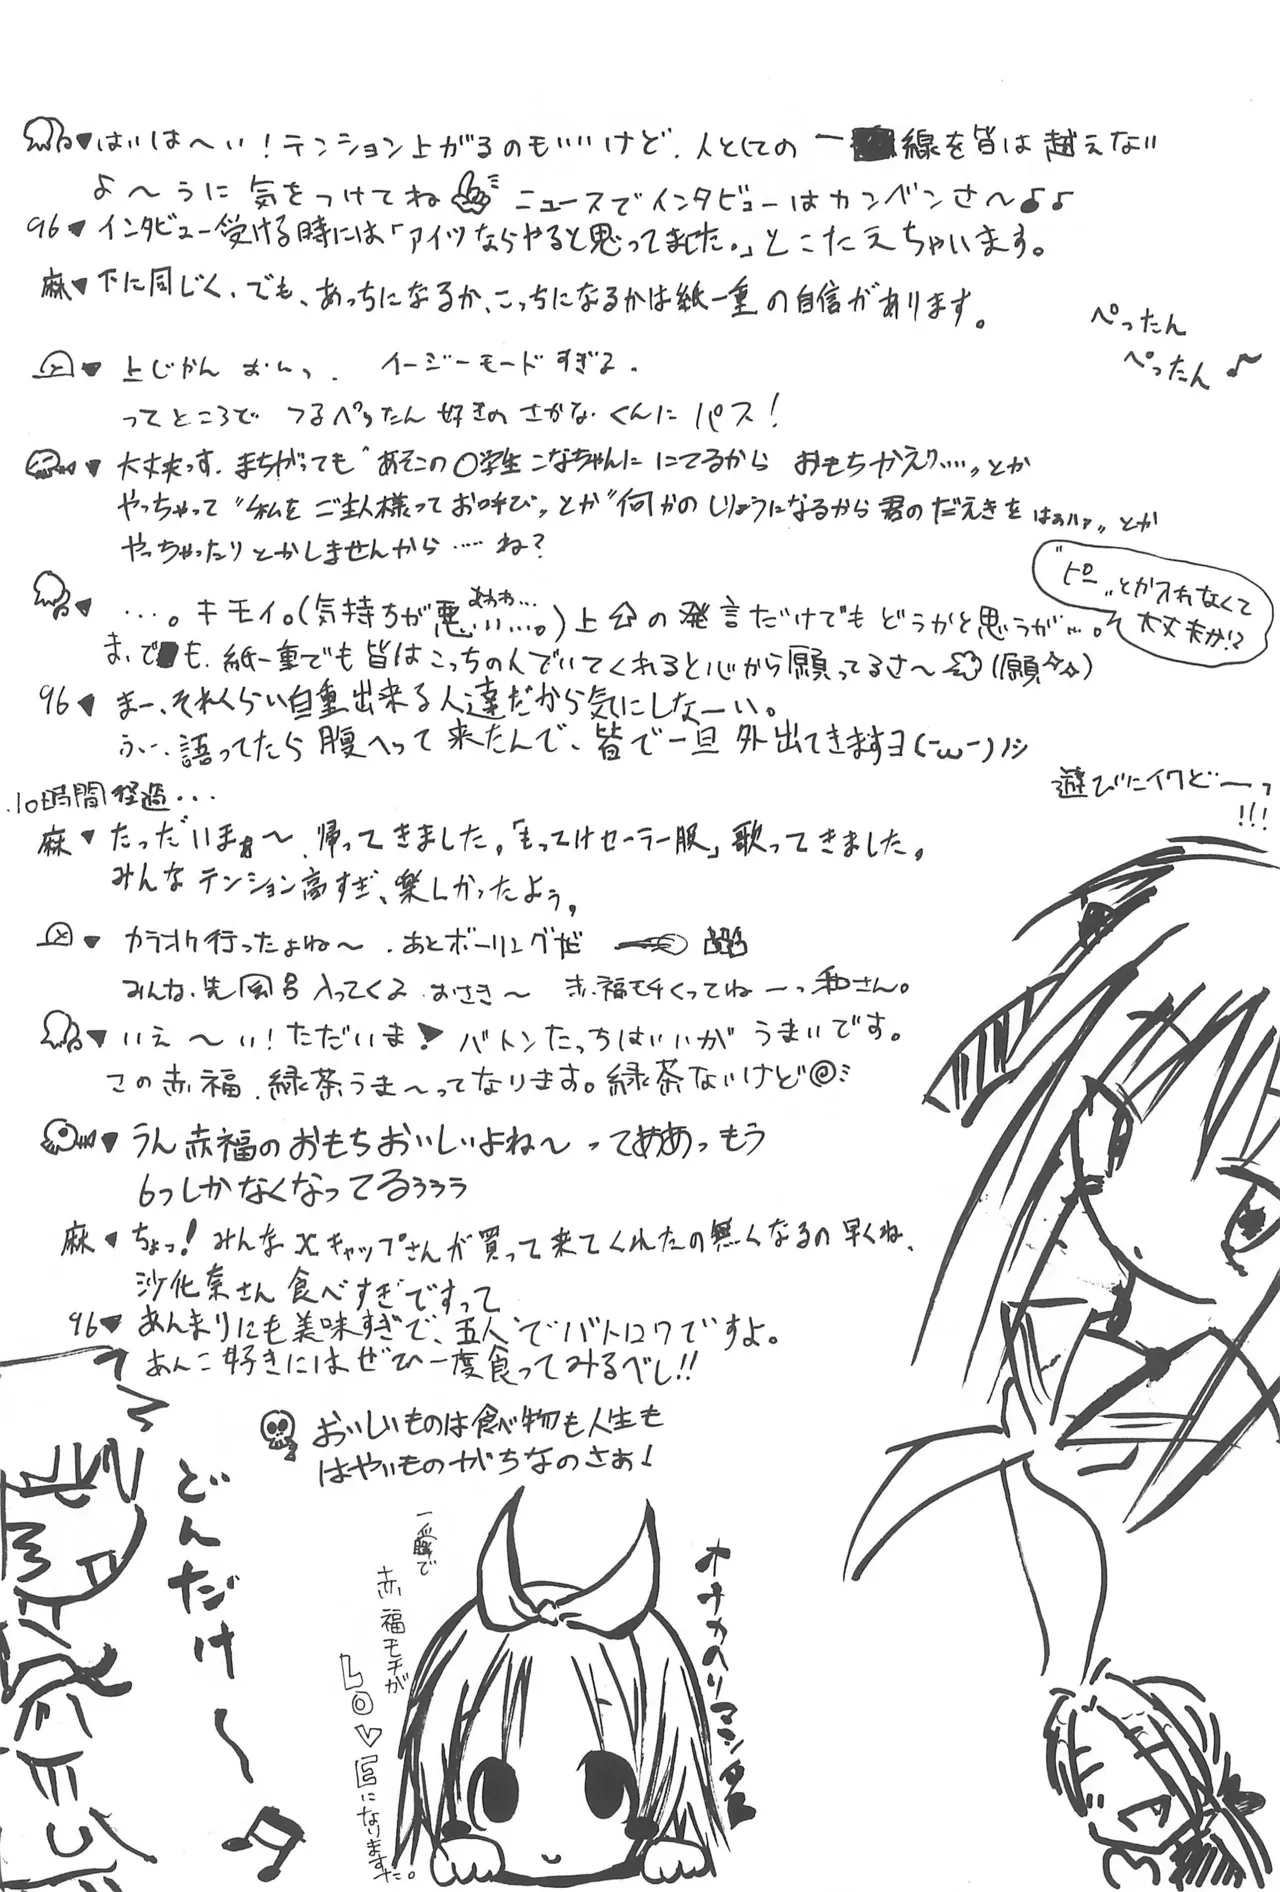 はいは～い!テンション上がるのもいいけど、人としての一線を皆は越えない
よ～うに気をつけてね ニュースでインタビューはカンベンさ～♪♪
96♥インタビュー受ける時には「アイツならやると思ってました。」とこたえちゃいます。
麻♥下に同じく、でも、あっちになるか、こっちになるかは紙一重の自信があります。
ぺったん
ぺったん♪
♥上じかん おいっ. イージーモードすぎる.
ってところで つるぺったん好きの さかなくんに パス!
♥大丈夫っす. まちがっても“あそこの〇学生こなちゃんに にてるから おもちかえり……”とか
やっちゃって“私をご主人様ってお呼び”とか“何かのじょうになるから君のだえきをはぁハァ”とか
やっちゃったりとかしませんから……ね?
“ピー”とか入れなくて
大丈夫か!?
♥…。キモイ。(気持ちが悪い……。)上の発言だけでもどうかと思うが…。
あわわ…
まぁでも、紙一重でも皆はこっちの人でいてくれると心から願ってるさ～(願)
96♥まー、それくらい自重出来る人達だから気にしなーい。
ふぃー、語ってたら腹へって来たんで、皆で一旦外出てきますヨ(-ω-)ノシ
遊びにイクどーっ
!!!
10時間経過…
麻♥たっだいまぁ～、帰ってきました。「もってけセーラー服」歌ってきました。
みんなテンション高すぎ、楽しかったよぅ。
♥カラオケ行ったよね～.あとボーリングだ
みんな、先風呂入ってくる.おさき～ 赤福モチくっててねーっ和さん。
♥いえ～い!ただいま♥バトンたっちはいいがうまいです。
この赤福、緑茶うま～ってなります。緑茶ないけど
♥うん赤福のおもちおいしいよね～ってああっもう
6っしかなくなってるぅぅぅ
麻♥ちょっ!みんなxキャップさんが買って来てくれたの無くなるの早くね、
沙化奈さん食べすぎですって
96♥あんまりにも美味すぎで、五人でバトロワですよ。
あんこ好きにはぜひ一度食ってみるべし!!
おいしいものは食べ物も人生も
はやいものがちなのさぁ♩
どんだけ～
一瞬で
赤福モチが
LO♡Eになりますた。
オナカヘリマシタ